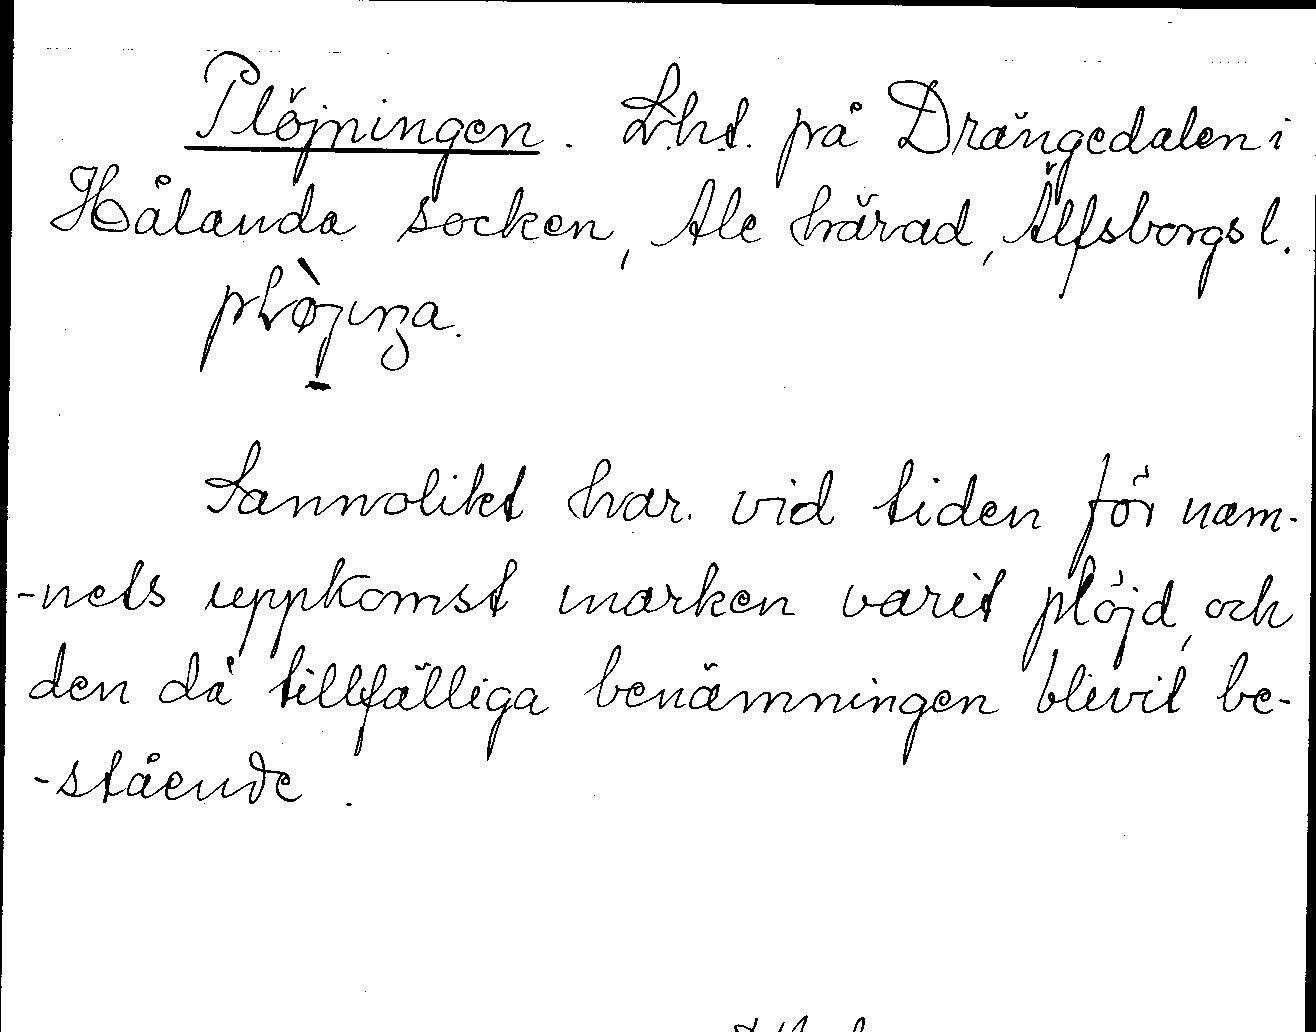 Plöjningen. Lht. på Drängedalen i
Hålanda socken, Ale härad, Älfsborgs l.
Sannolikt har. vid tiden för nam-
-nets uppkomst marken varit plöjd, och
den då tillfälliga benämningen blivit be-
-stående.